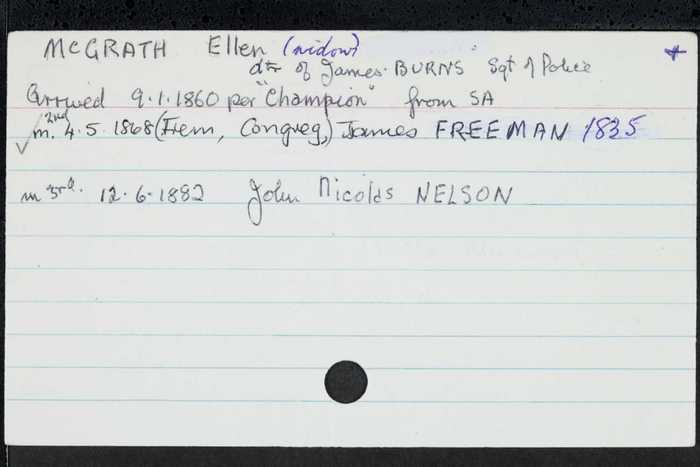 McGRATH Ellen (widow) +
dtr of James BURNS Sgt of Police
Arrived 9.1.1860 per "Champion" from SA
✓ m. 2nd 4.5.1868 (Frem, Congreg,) James FREEMAN 1835
m 3rd. 12.6.1882 John Nicolas NELSON